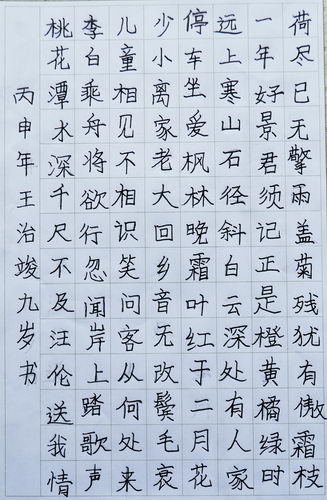 荷尽已无擎雨盖菊残犹有傲霜枝
一年好景君须记正是橙黄橘绿时
远上寒山石径斜白云深处有人家
停车坐爱枫林晚霜叶红于二月花
少小离家老大回乡音无改鬓毛衰
儿童相见不相识笑问客从何处来
李白乘舟将欲行忽闻岸上踏歌声
桃花潭水深千尺不及汪伦送我情
丙申年王治竣九岁书